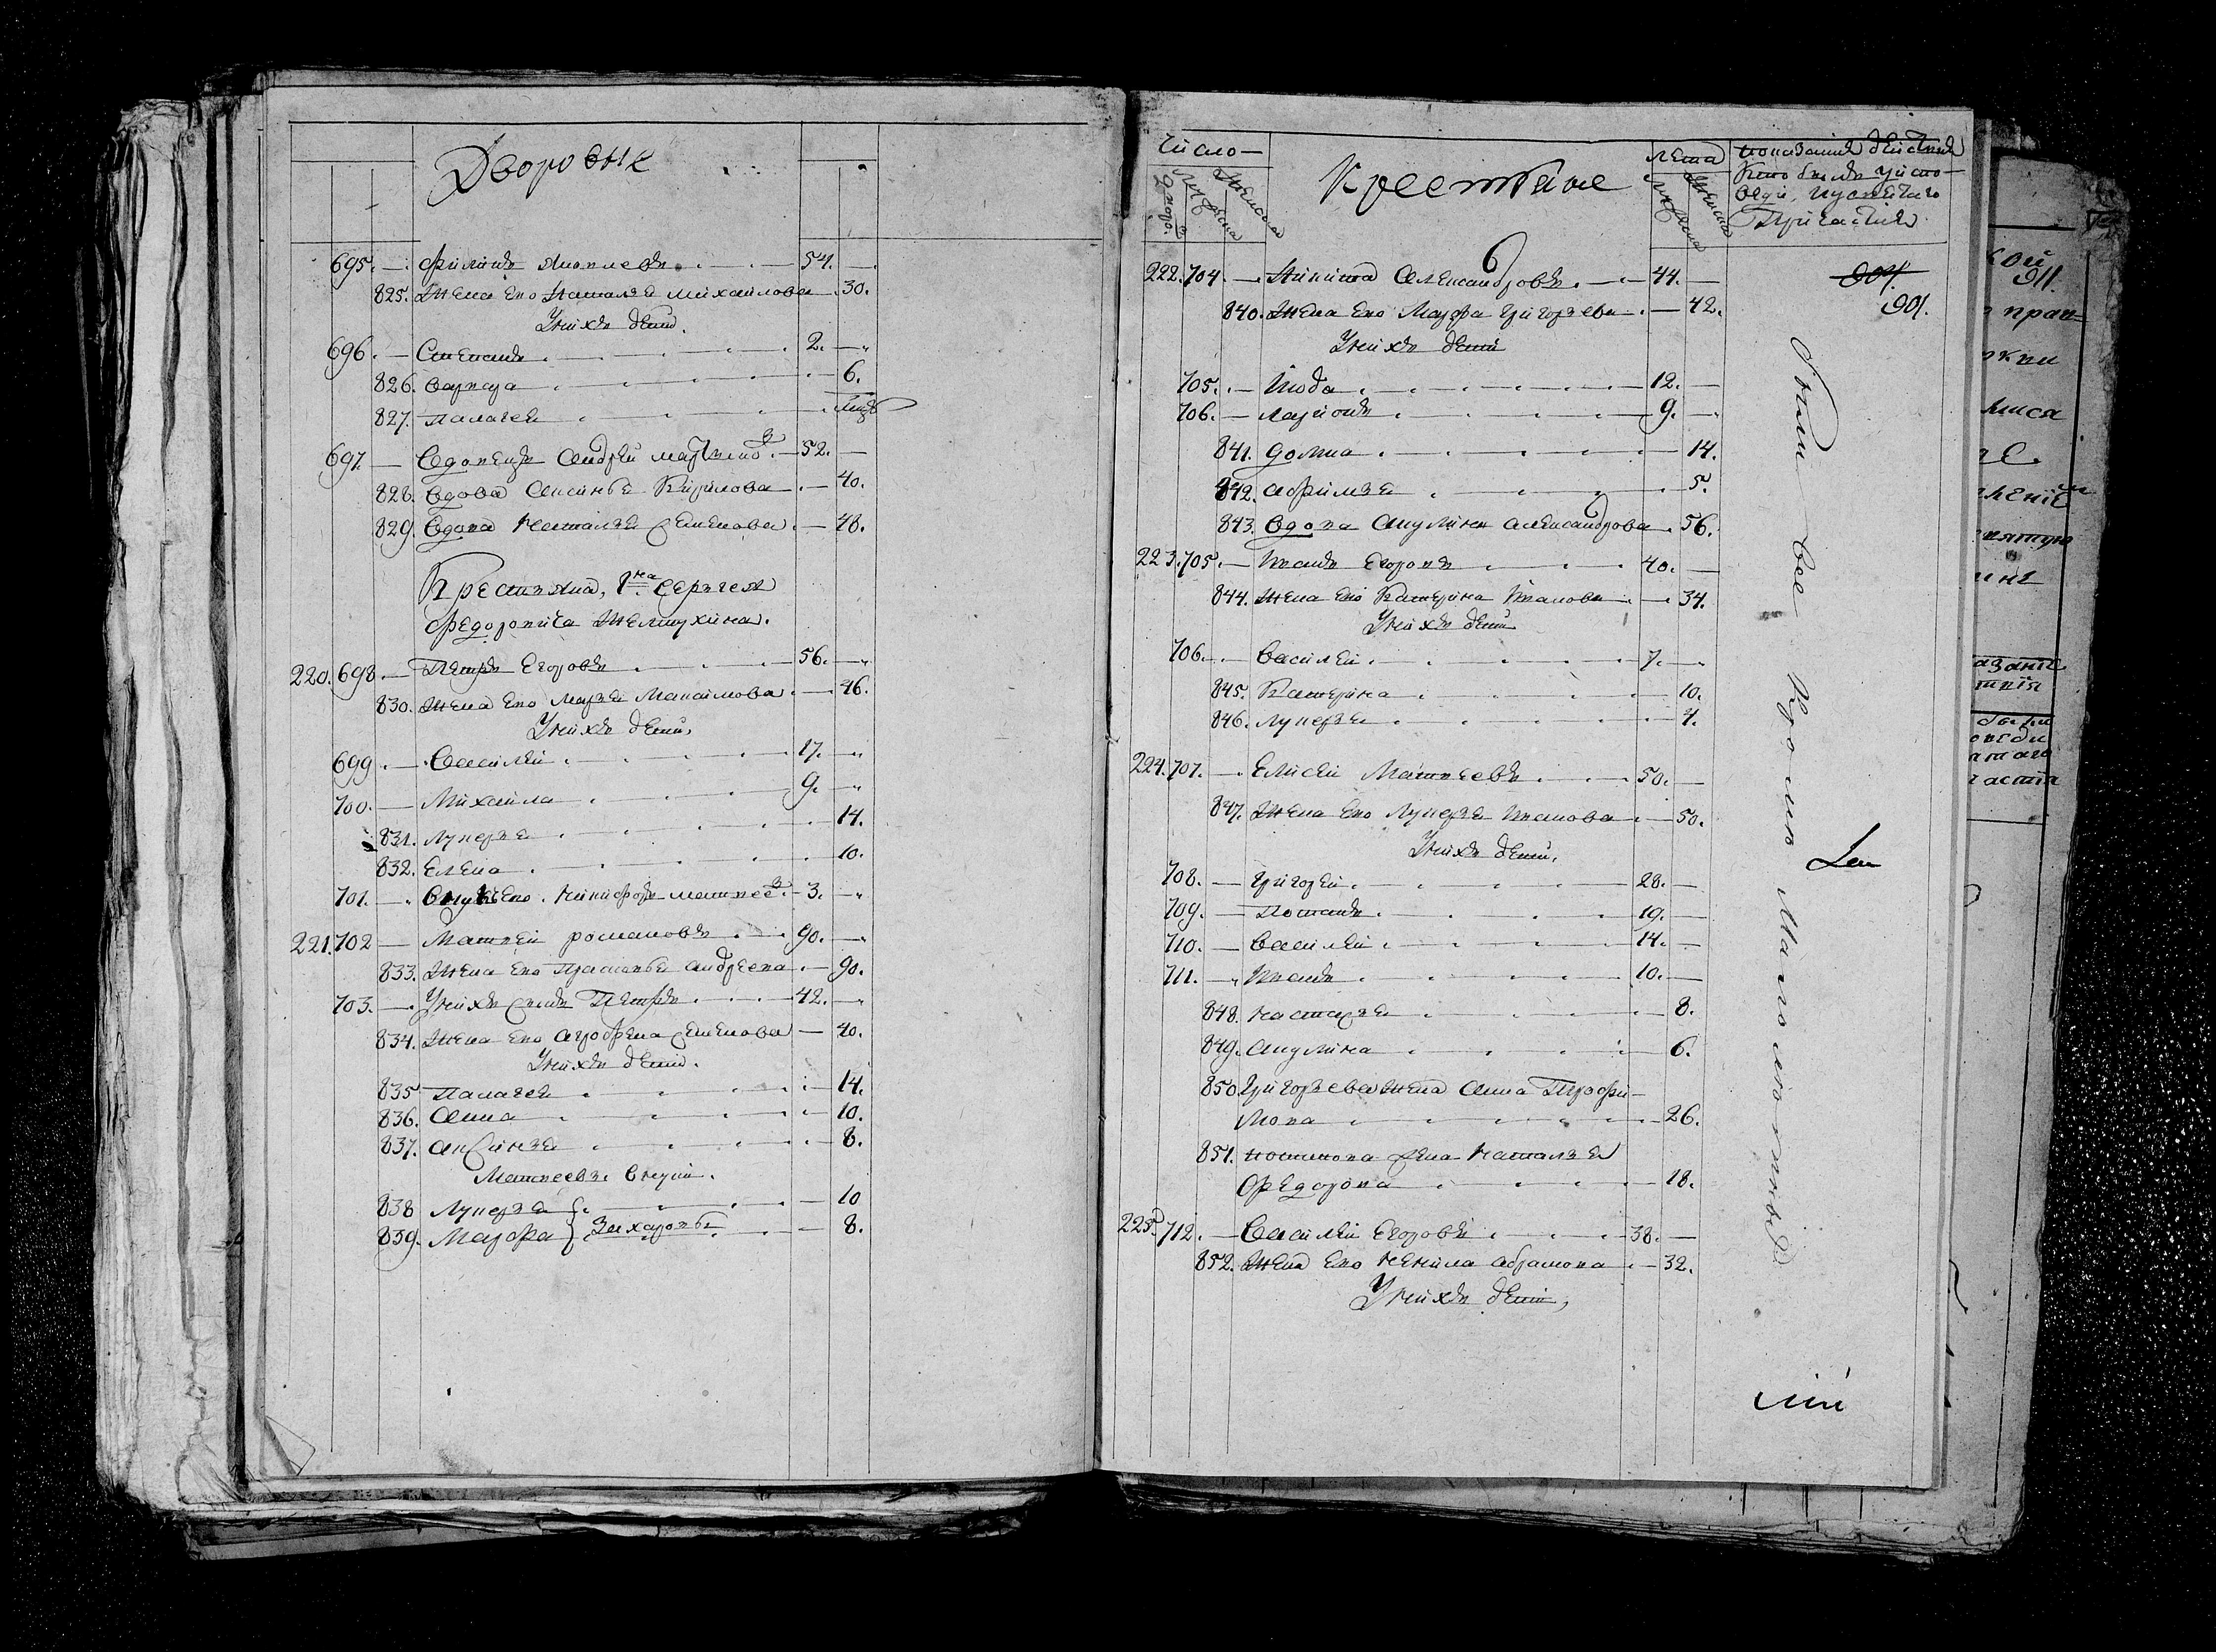 Дворовые
695. Филипъ Яковлевъ 54.
825. Жена ево Наталья михайлова 30.
У нихъ дети.
696. Степанъ 2.
826. варвара 6.
827. палагея
697. Вдовецъ андрей 52.
828. вдова аксинья Кирилова 40.
829. Вдова наталья семенова 48.
Крестьяна, 1на Сергея
Федоровича Желтухина.
220. 698. Петръ Егоровъ 56.
830. Жена ево марья Максимова 46.
У нихъ дети,
699. Василей 17.
700. Михаила 9.
831. Лукерья 14.
832. Елена 10.
701. Внукъ ево никифоръ матвеевъ 3.
221. 702 Матвей романовъ 90.
833. Жена ево прасковья андреева 90.
703. У нихъ сынъ Петръ 42.
834. Жена ево агрофена семенова 40.
У нихъ дети.
835 палагея 14.
836. Анна 10.
837. аксинья 8.
Матвеевы внуки.
838 Лукерья 10
839. Марфа } Захаровы 8.
Число
Дворо.
Мужска
Женска
Крестьяне
лета
Мужска
Женска
показаниe действия
Кто былъ у испо-
веди, и святаго
Причастия
222. 704. Никита Александровъ 44.
901.
840. Жена ево Марфа григорьева 42.
У нихъ дети
705. 12.
706. ларионъ 9.
841. домна 14.
842. афимья 5.
843. вдова акулина александрова 56.
223. 705. Иванъ Егоровъ 40.
844. Жена ево Катерина Иванова 34.
У нихъ дети
706. Василей 7.
845. Катерина 10.
846. лукерья 4.
224. 707. Елисей Матвеевъ 50.
847. Жена ево Лукерья иванова 50.
У нихъ дети.
708. григорей 28.
709. Потапъ 19.
710. Василей 14.
711. Иванъ 10.
848. настасья 8.
849. акулина 6.
850. григорьева жена Анна Трофи-
мова 26.
851. потапова жена наталья
Федорова 18.
225. 712. Василей Егоровъ 38.
852. Жена ево ненила абрамова 32.
У нихъ дети,
все Кроме малолетныхъ